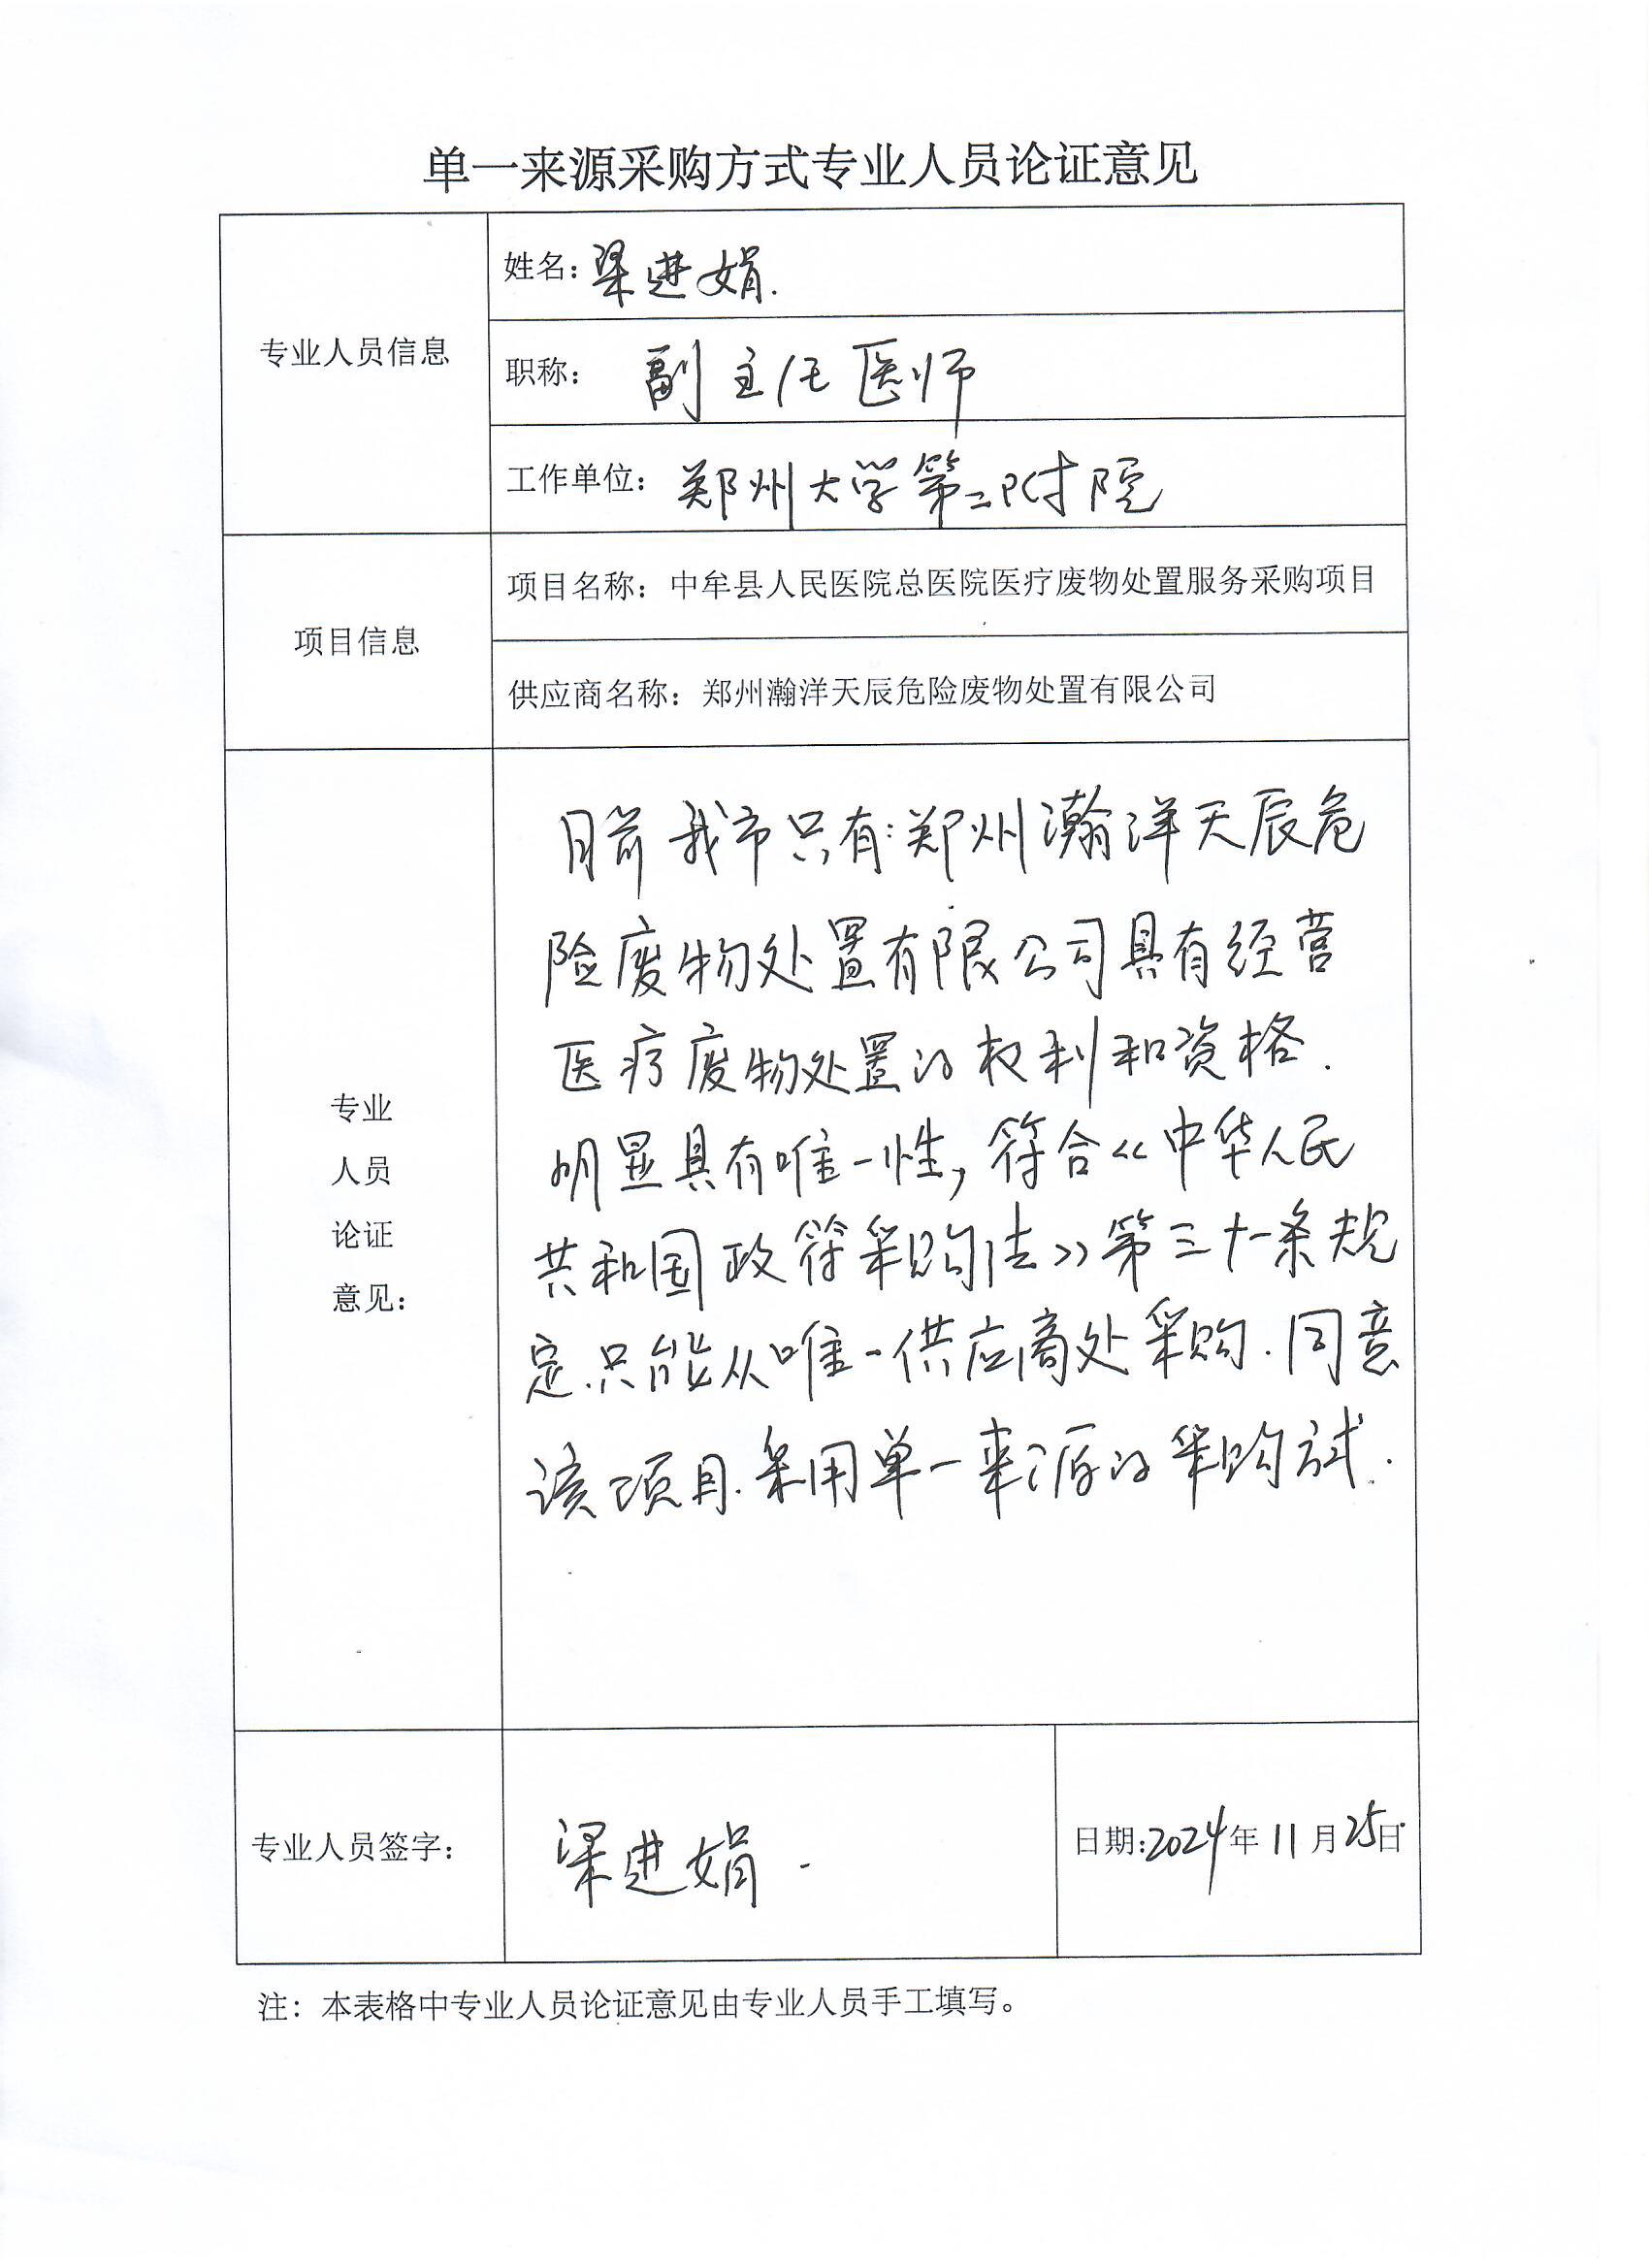 单一来源采购方式专业人员论证意见
专业人员信息
姓名：梁进娟.
职称：副主任医师
工作单位：郑州大学第二附院
项目信息
项目名称：中牟县人民医院总医院医疗废物处置服务采购项目
供应商名称：郑州瀚洋天辰危险废物处置有限公司
专业
人员
论证
意见：
目前我市只有:郑州瀚洋天辰危
险废物处置有限公司具有经营
医疗废物处置的权利和资格.
明显具有唯一性，符合《中华人民
共和国政府采购法》第三十一条规
定.只能从唯一供应商处采购.同意
该项目.采用单一来源的采购方式.
专业人员签字：
梁进娟.
日期:2024年11月25日
注：本表格中专业人员论证意见由专业人员手工填写。